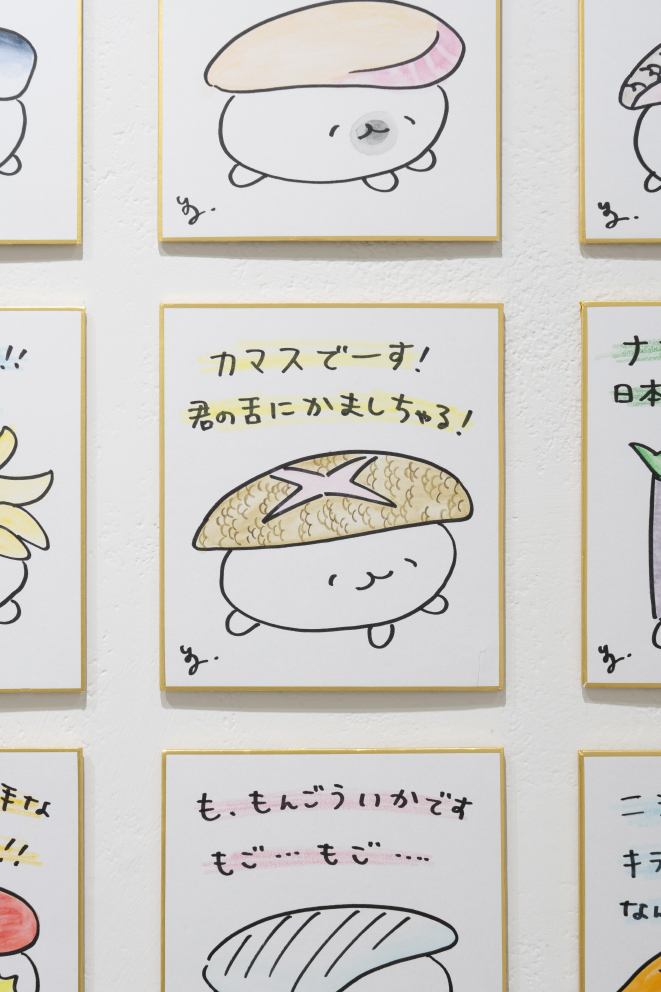 !!
カマスでーす!
君の舌にかましちゃる!
ナ
日本
手な
!!
も、もんごういかです
もご…もご‥‥
ニ
キラ
なん